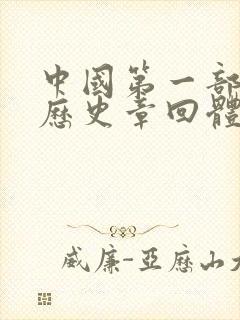 中國第一部
歷史章回體
威廉-亞歷山大